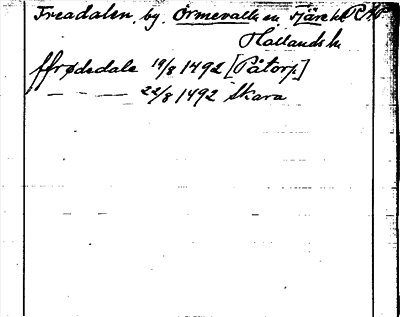 Freadalen, by. Ormevalla sn Fjäre hd R.A.P.
Hallands l.
ffrødsdale 19/8 1492 [Påtorp]
— — — — 22/8 1492 Skara